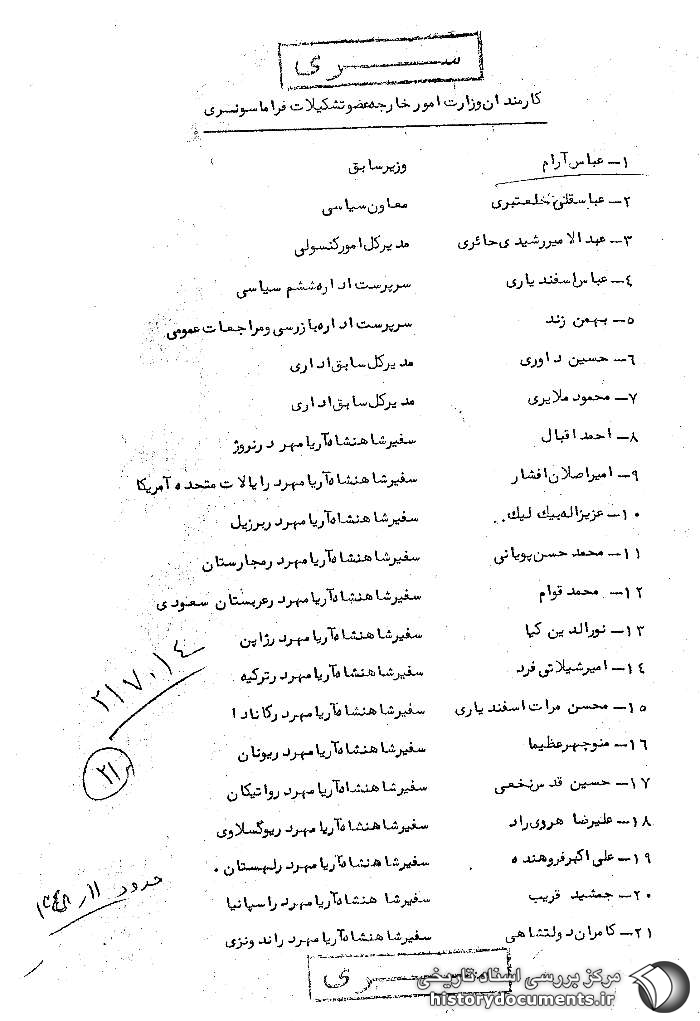 سری
کارمندان وزارت امور خارجه عضو تشکیلات فراماسونری
۱- عباس آرام وزیر سابق
۲- عباسقلی خلعتبری معاون سیاسی
۳- عبدالامیر رشیدی حائری مدیر کل امور کنسولی
۴- عباس اسفندیاری سرپرست اداره ششم سیاسی
۵- بهمن زند سرپرست اداره بازرسی و مراجعات عمومی
۶- حسین داوری مدیر کل سابق اداری
۷- محمود ملایری مدیر کل سابق اداری
۸- احمد اقبال سفیر شاهنشاه آریامهر در نروژ
۹- امیر اصلان افشار سفیر شاهنشاه آریامهر در ایالات متحده آمریکا
۱۰- عزیزاله بیک لیک.. سفیر شاهنشاه آریامهر در برزیل
۱۱- محمد حسن پویانی سفیر شاهنشاه آریامهر در مجارستان
۱۲- محمد قوام سفیر شاهنشاه آریامهر در عربستان سعودی
۱۳- نورالدین کیا سفیر شاهنشاه آریامهر در ژاپن
۱۴- امیر شیلاتی فرد سفیر شاهنشاه آریامهر در ترکیه
۱۵- محسن مرات اسفندیاری سفیر شاهنشاه آریامهر در کانادا
۱۶- منوچهر عظیما سفیر شاهنشاه آریامهر در یونان
۱۷- حسین قدس نخعی سفیر شاهنشاه آریامهر در واتیکان
۱۸- علیرضا هروی راد سفیر شاهنشاه آریامهر در یوگسلاوی
۱۹- علی اکبر فروهنده سفیر شاهنشاه آریامهر در لهستان.
۲۰- جمشید قریب سفیر شاهنشاه آریامهر در اسپانیا
۲۱- کامران دولتشاهی سفیر شاهنشاه آریامهر در اندونزی
۲۱۷۰۱۴
۲۱
حدود
سری
مرکز بررسی اسناد تاریخی
historydocuments.ir